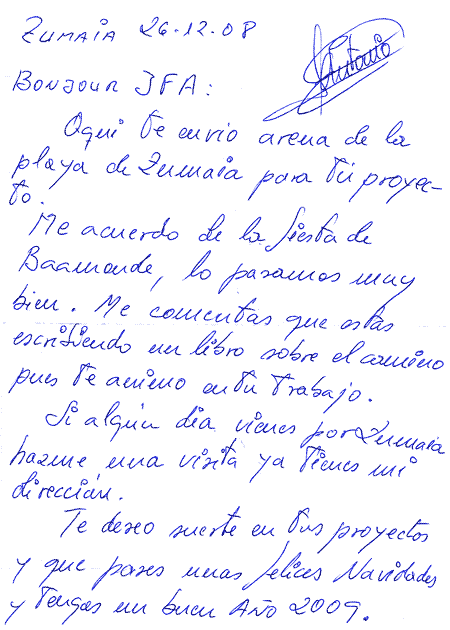 Zumaia 26-12-08
Antonio
Bonjour JFA:
Aqui te envio arena de la
playa de Zumaia para tú proyec-
to.
Me acuerdo de la fiesta de
Baamonde, lo pasamos muy
bien. Me comentas que estas
escribiendo un libro sobre el camino
pues te animo en tu trabajo.
Si algún dia vienes por Zumaia
hazme una visita ya tienes mi
dirección.
Te deseo suerte en tus proyectos
y que pases unas felices Navidades
y tengas un buen Año 2009.